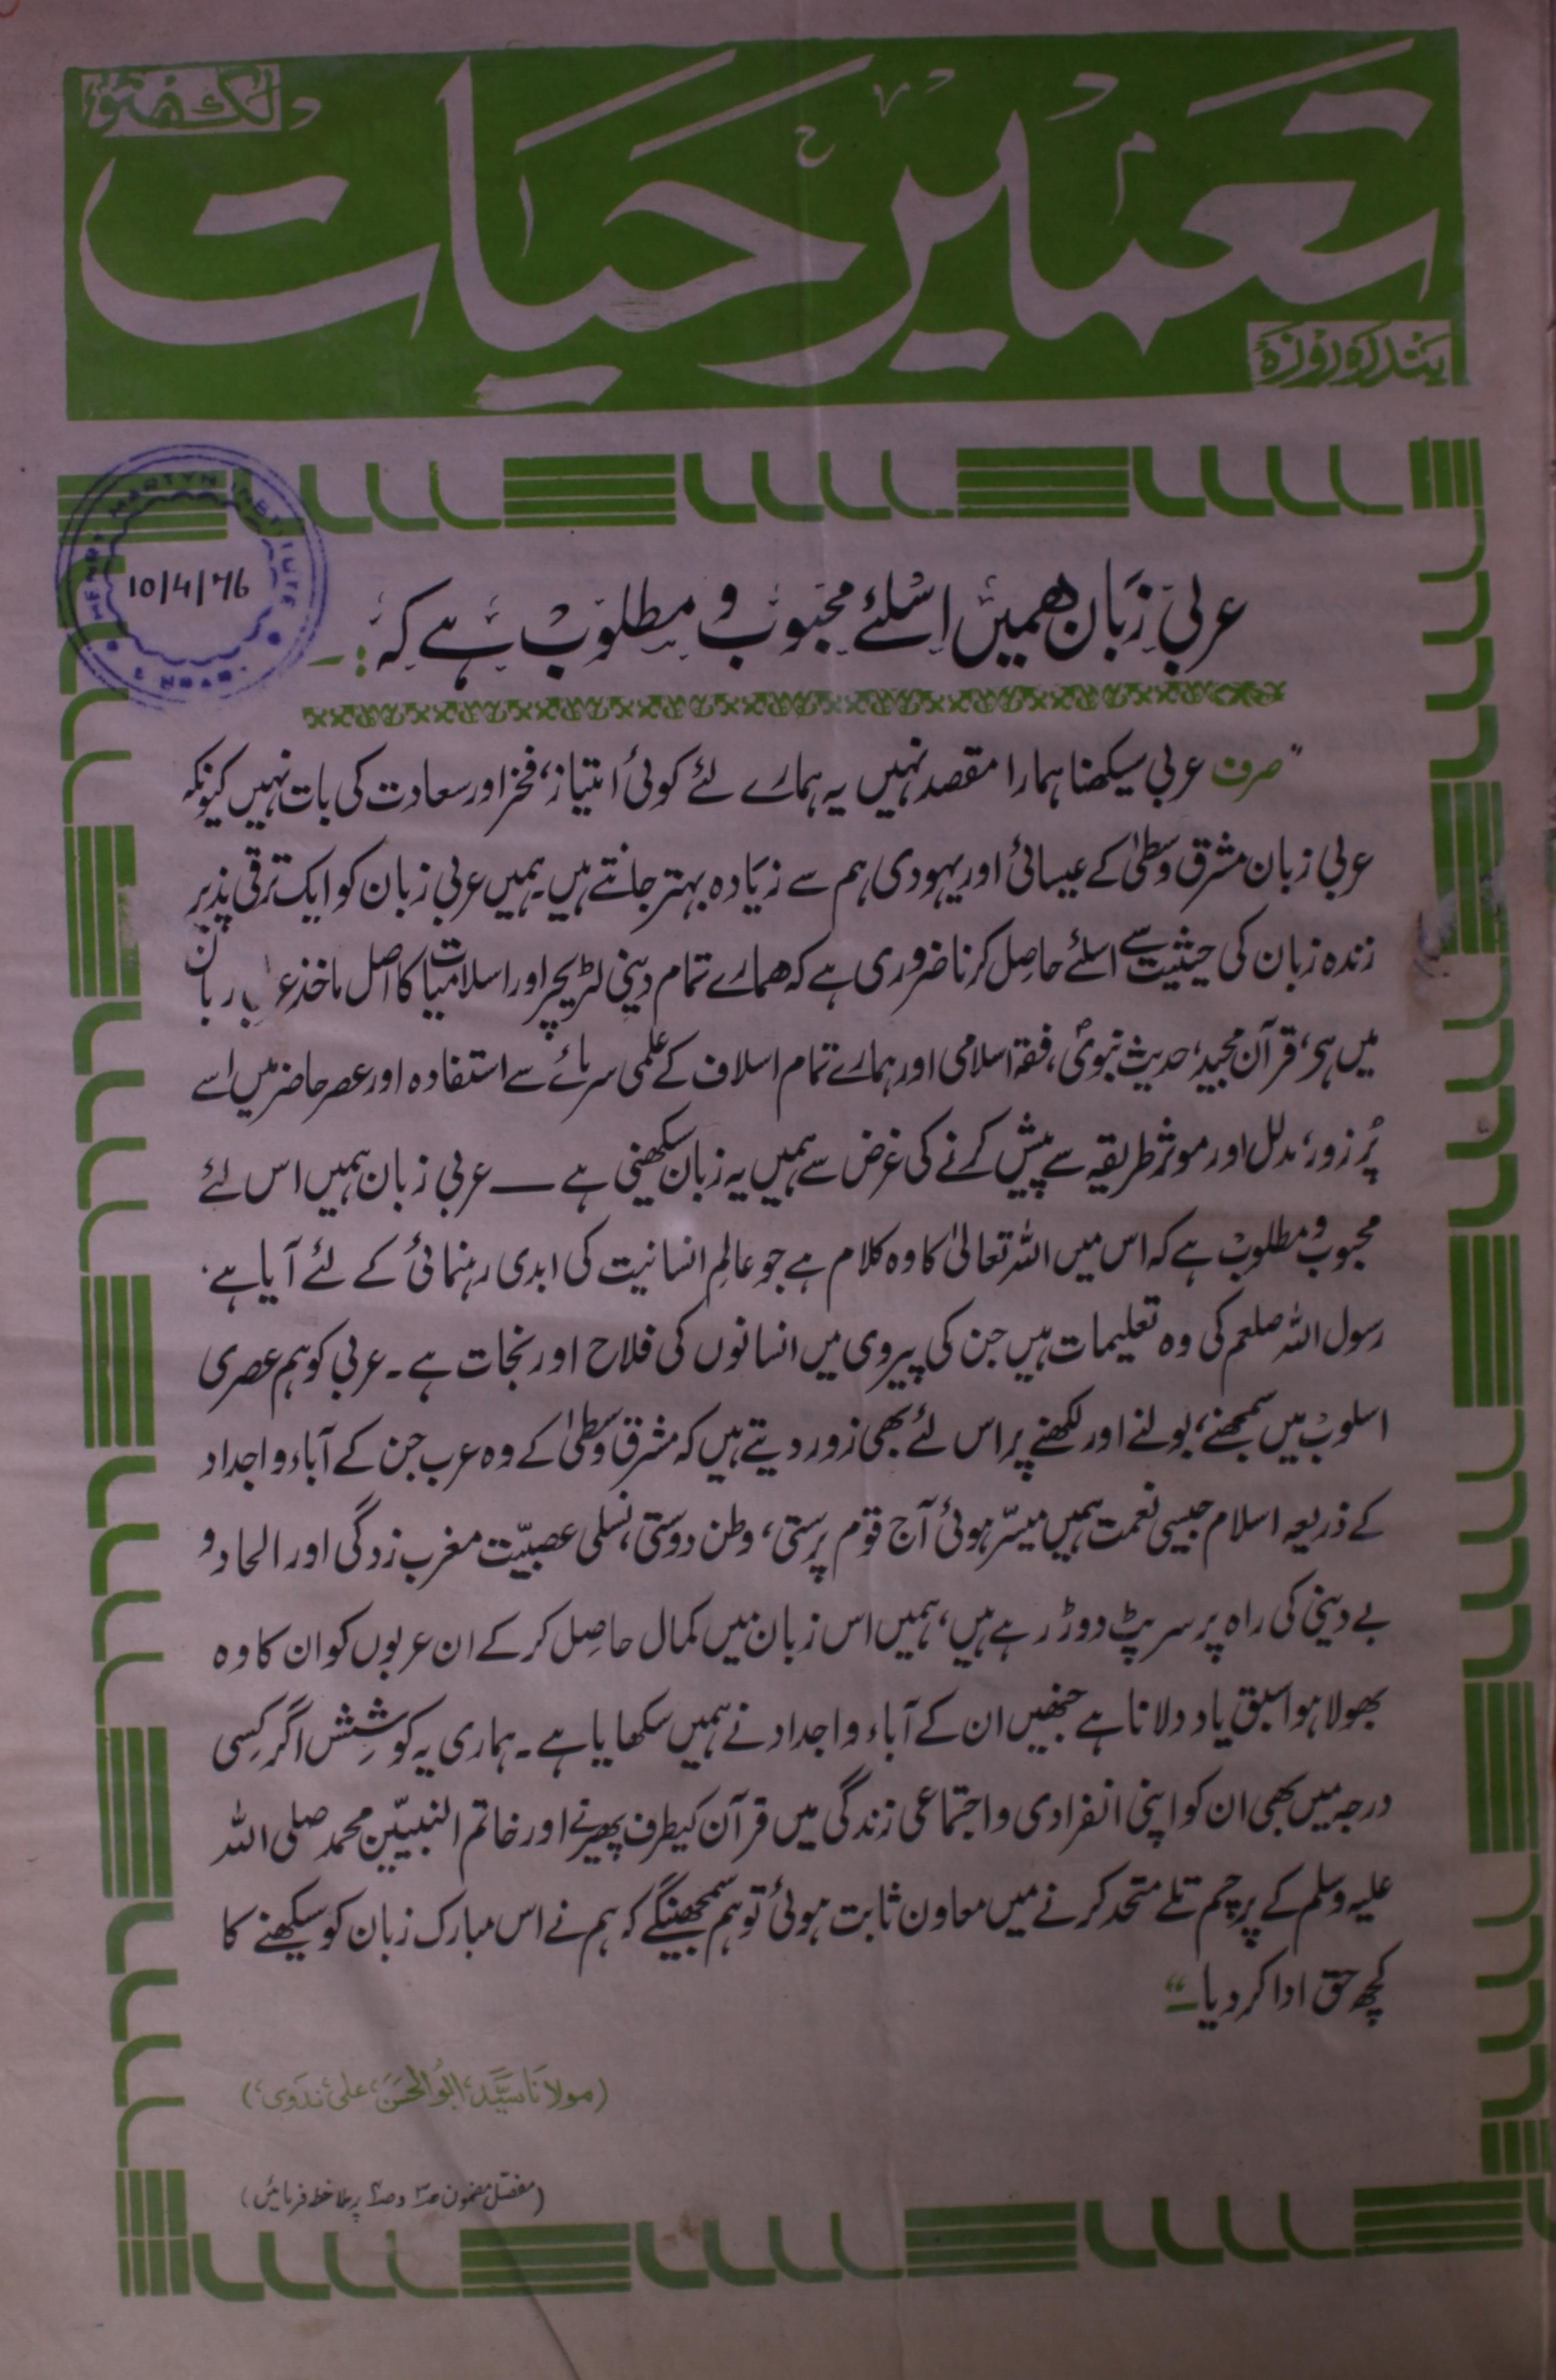 لکھنؤ
تعمیر حیات
پندرہ روزہ
HENRY MARTYN INSTITUTE
10/4/76
عربی زبان ھمیں اسلئے محبوب و مطلوب ہے کہ :ـ
"صرف عربی سیکھنا ہمارا مقصد نہیں یہ ہمارے لئے کوئی امتیاز، فخر اور سعادت کی بات نہیں کیونکہ
عربی زبان مشرق وسطیٰ کے عیسائی اور یہودی ہم سے زیادہ بہتر جانتے ہیں۔ ہمیں عربی زبان کو ایک ترقی پذیر
زندہ زبان کی حیثیت سے اسلئے حاصل کرنا ضروری ہے کہ ھمارے تمام دینی لٹریچر اور اسلامیات کا اصل ماخذ عربی زبان
میں ہی، قرآن مجید، حدیث نبویؐ، فقہ اسلامی اور ہمارے تمام اسلاف کے علمی سرمائے سے استفادہ اور عصر حاضر میں اسے
پُر زور، مدلل اور موثر طریقہ سے پیش کرنے کی غرض سے ہمیں یہ زبان سکھینی ہے ــ عربی زبان ہمیں اس لئے
محبوب و مطلوب ہے کہ اس میں اللہ تعالیٰ کا وہ کلام ہے جو عالم انسانیت کی ابدی رہنمائی کے لئے آیا ہے۔
رسول اللہ صلعم کی وہ تعلیمات ہیں جن کی پیروی میں انسانوں کی فلاح اور نجات ہے۔ عربی کو ہم عصری
اسلوب میں سمجھنے، بولنے اور لکھنے پر اس لئے بھی زور دیتے ہیں کہ مشرق وسطیٰ کے وہ عرب جن کے آباء و اجداد
کے ذریعہ اسلام جیسی نعمت ہمیں میسّر ہوئی آج قوم پرستی، وطن دوستی، نسلی عصبیّت مغرب زدگی اور الحاد و
بے دینی کی راہ پر سرپٹ دوڑ رہے ہیں، ہمیں اس زبان میں کمال حاصل کر کے ان عربوں کو ان کا وہ
بھولا ہوا سبق یاد دلانا ہے جنھیں ان کے آباء و اجداد نے ہمیں سکھایا ہے۔ ہماری یہ کوشش اگر کسی
درجہ میں بھی ان کو اپنی انفرادی و اجتماعی زندگی میں قرآن کیطرف پھیرنے اور خاتم النبیّین محمد صلی اللہ
علیہ وسلم کے پرچم تلے متحد کرنے میں معاون ثابت ہوئی تو ہم سمجھینگے کہ ہم نے اس مبارک زبان کو سیکھنے کا
کچھ حق ادا کر دیا۔"
(مولانا سیّد ابوالحسن علی ندوی)
(مفصّل مضمون ص۳ و ص۴ پر ملاحظہ فرمائیں)